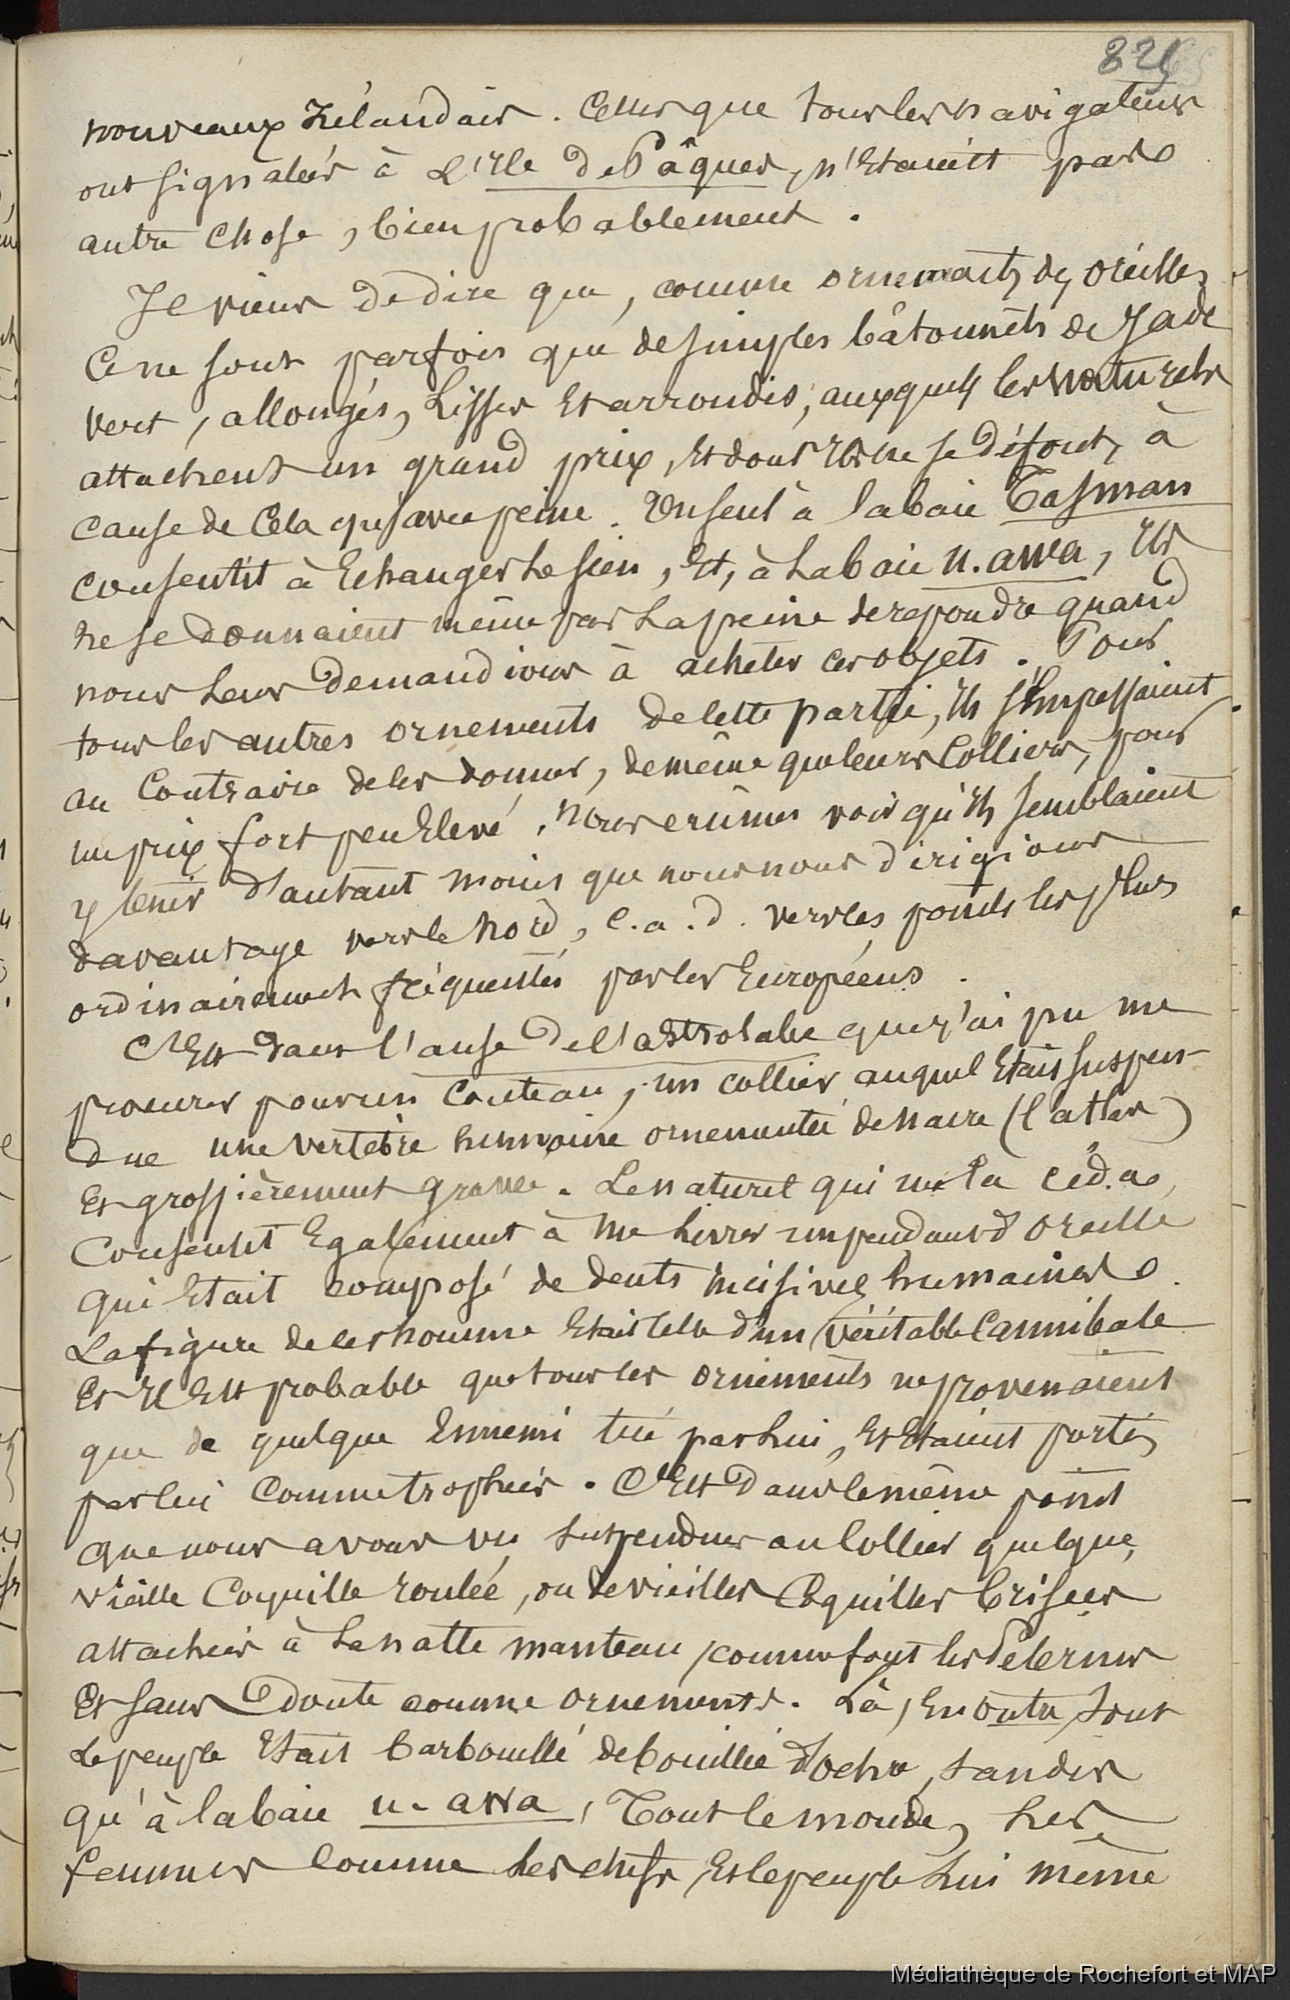 825
nouveaux Zélandais. Celles que tous les navigateurs
ont signalées à L'Ile de Pâques, n'Etaient pas
autre chose, bien probablement.
Je viens de dire que, comme ornements des oreilles,
Ce ne sont parfois que de simples bâtonnets de Jade
vert, allongés, Lisses Et arrondis, auxquels les naturels
attachent un grand prix, Et dont Ils ne se défont, à
cause de Cela qu'avec peine. Un seul à la baie Tasman
consentit à Echanger Le sien, Et, à La baie u. awa, Ils
ne se donnaient même pas La peine de repondre quand
nous Leur demandions à acheter ces objets. Pour
tous les autres ornements de cette partie, Ils s'Empressaient
au Contraire de les donner, de même que leurs Colliers, pour
un prix fort peu Elevé. Nous crûmes voir qu'Ils semblaient
y tenir d'autant moins que nous nous dirigions
davantage vers le Nord, c.a.d. vers les points les plus
ordinairement fréquentés par les Européens.
C'Est dans l'anse de l'astrolabe que j'ai pu me
procurer pour un Couteau, un collier auquel Etait suspen-
due une vertèbre humaine ornementée de nacre (l'atlas)
Et grossièrement gravée. Le naturel qui me la céda,
Consentit Egalement à me Livrer un pendant d'oreille
qui Etait composé de dents incisives humaines.
La figure de cet homme Etait celle d'un véritable Cannibale
Et Il Est probable que tous les ornements ne provenaient
que de quelque Ennemi tué par Lui, Et Etaient portés
par lui comme trophées. C'Est dans le même point
que nous avons vu suspendues au Collier quelque
vieille Coquille roulée, ou de vieilles Coquilles brisées
attachées à La natte manteau, comme font les Pélerins
Et sans doute comme ornements. Là, En outre, tout
Le peuple Etait barbouillé de bouillie d'Ochre, tandis
qu'à la baie u-awa, Tout le monde, Les
femmes comme Les chefs, Et le peuple Lui même
Médiathèque de Rochefort et MAP